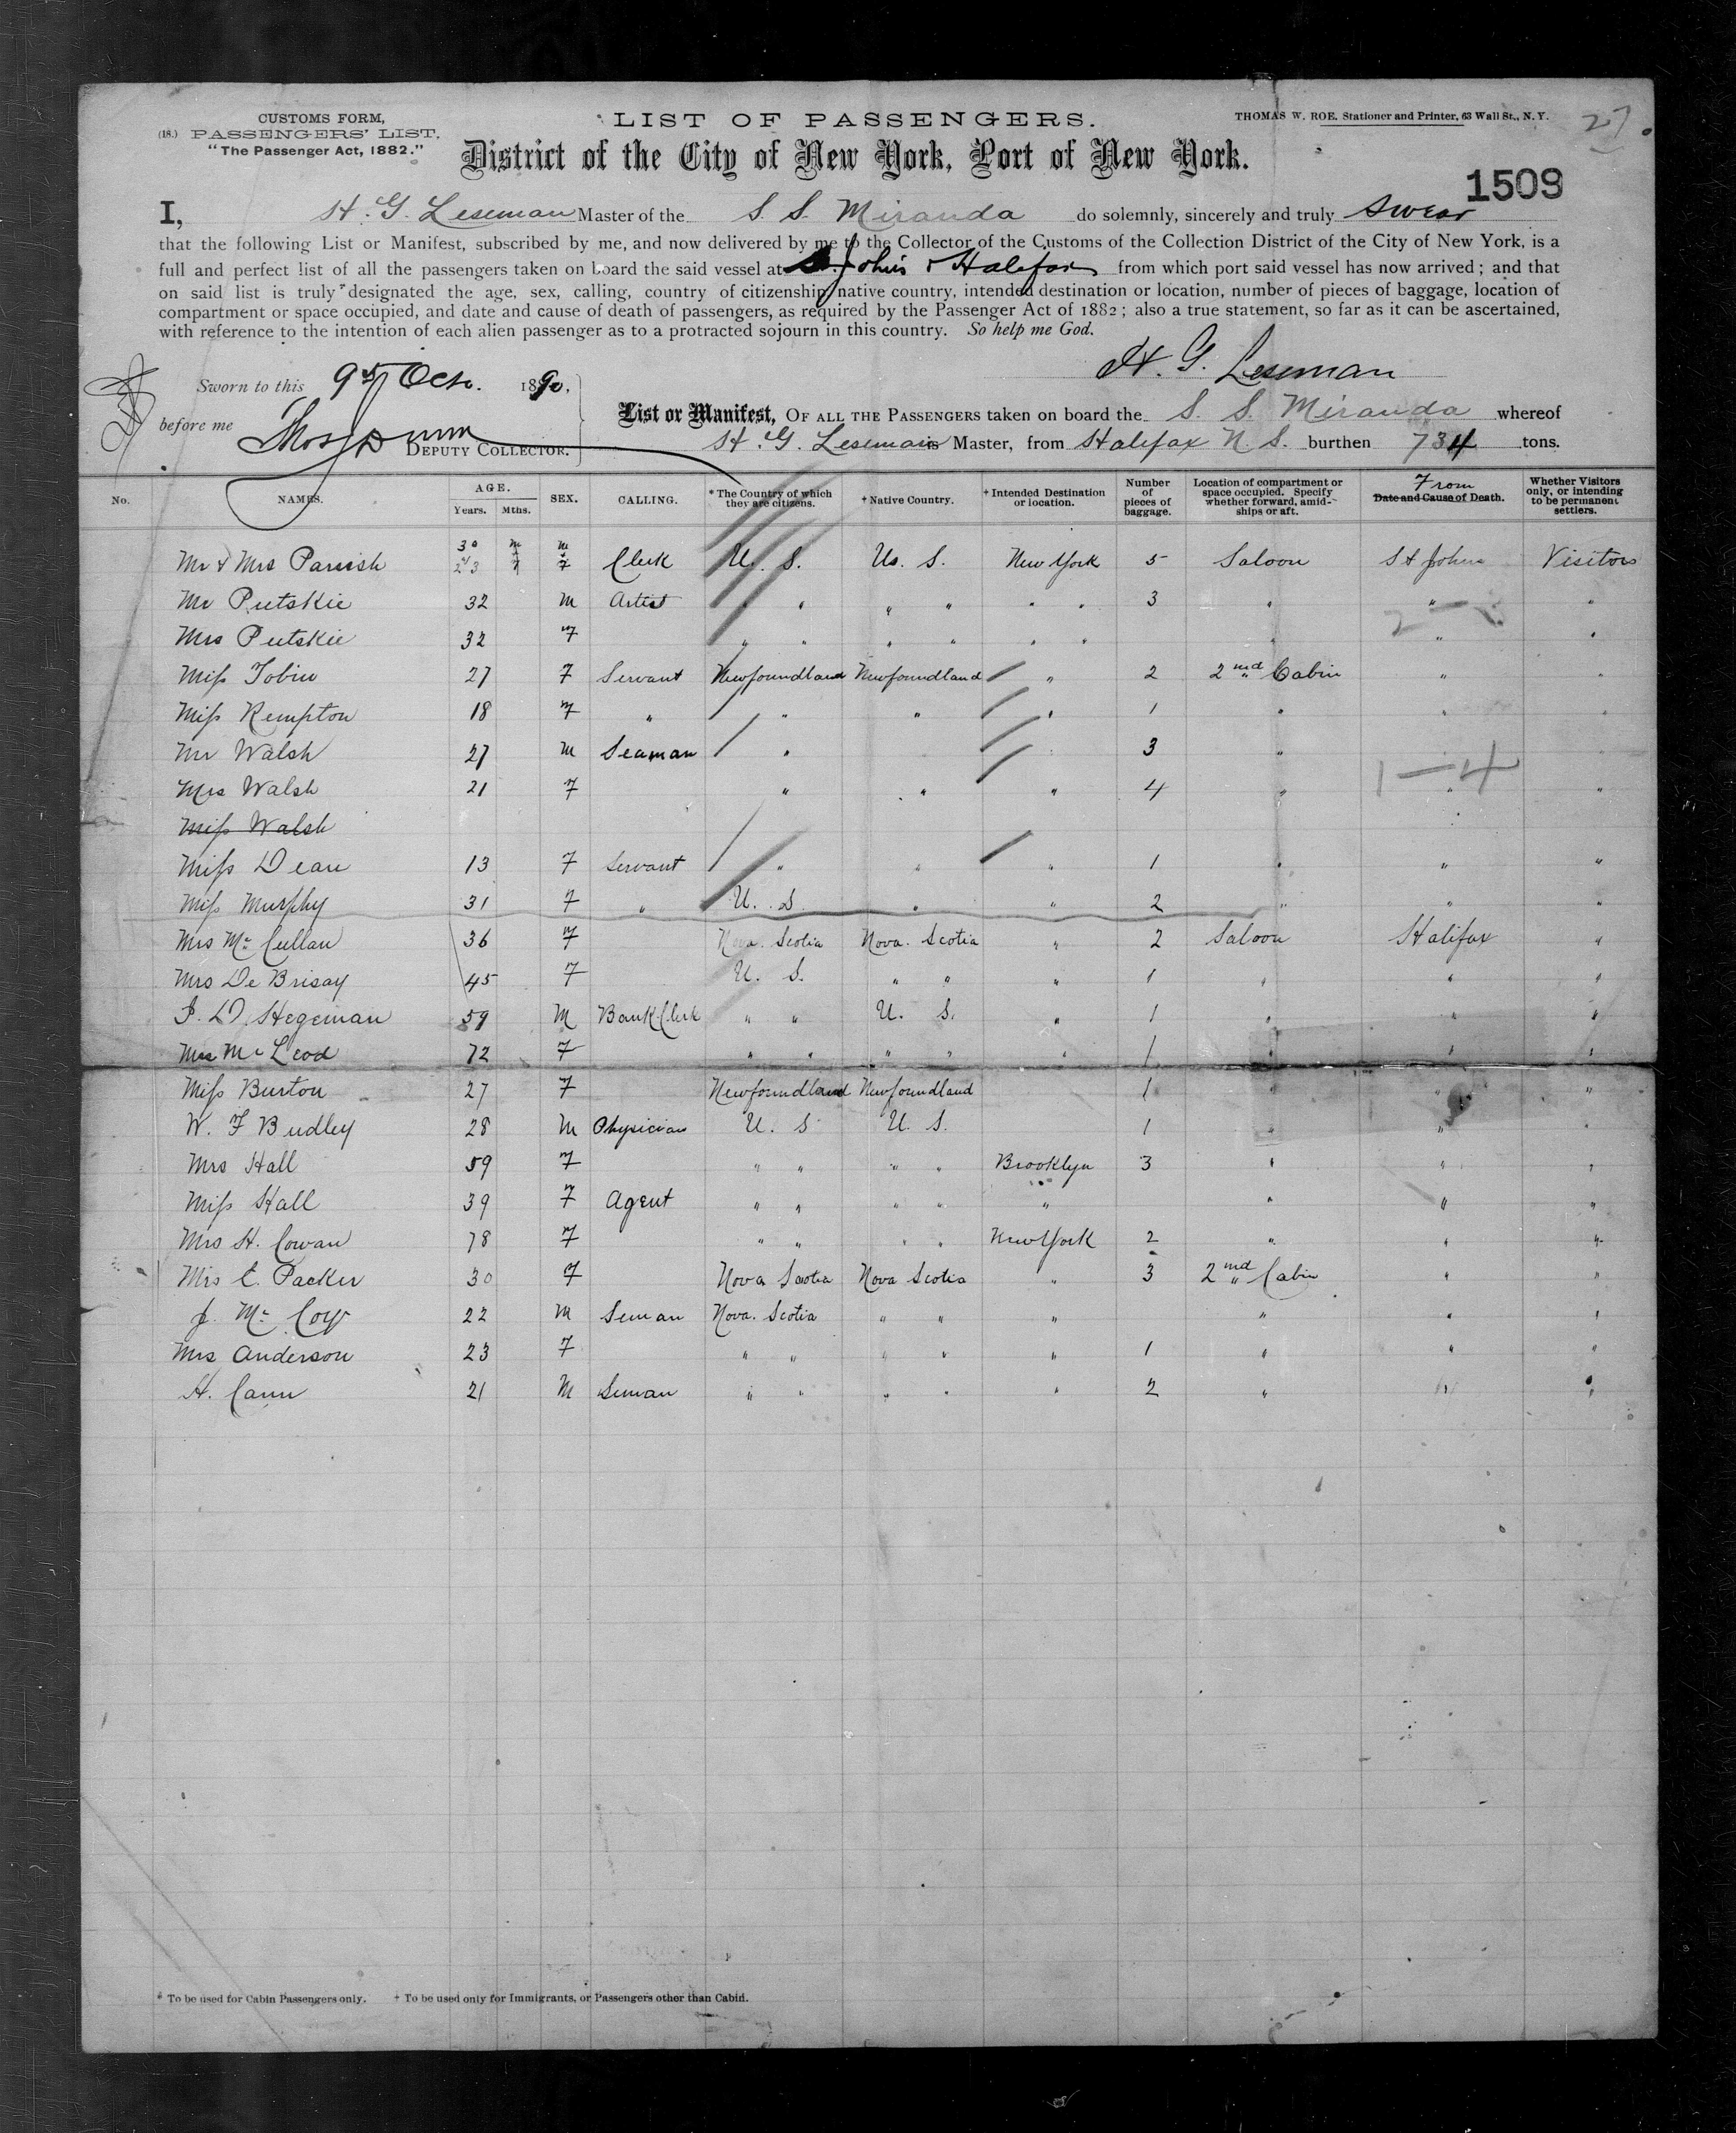 CUSTOMS FORM,
(18.) PASSENGERS' LIST.
"The Passenger Act, 1882."
LIST OF PASSENGERS.
THOMAS W. ROE, Stationer and Printer, 63 Wall St., N. Y.
27.
District of the City of New York, Port of New York.
1509
I, H. G. Leseman Master of the S. S. Miranda do solemnly, sincerely and truly swear
that the following List or Manifest, subscribed by me, and now delivered by me to the Collector of the Customs of the Collection District of the City of New York, is a
full and perfect list of all the passengers taken on board the said vessel at St. Johns & Halifax from which port said vessel has now arrived; and that
on said list is truly designated the age, sex, calling, country of citizenship, native country, intended destination or location, number of pieces of baggage, location of
compartment or space occupied, and date and cause of death of passengers, as required by the Passenger Act of 1882; also a true statement, so far as it can be ascertained,
with reference to the intention of each alien passenger as to a protracted sojourn in this country. So help me God.
H. G. Leseman
Sworn to this 9th Oct. 1890.
before me
DEPUTY COLLECTOR.
List or Manifest, OF ALL THE PASSENGERS taken on board the S. S. Miranda whereof
H. G. Leseman is Master, from Halifax N. S. burthen 734 tons.
No. NAMES. AGE. Years. Mths. SEX. CALLING. * The Country of which they are citizens. † Native Country. † Intended Destination or location. Number of pieces of baggage. Location of compartment or space occupied. Specify whether forward, amidships or aft. From Date and Cause of Death. Whether Visitors only, or intending to be permanent settlers.
Mr & Mrs Parrish 30 23 m f m f Clerk U. S. U. S. New York 5 Saloon St Johns Visitors
Mr Putskie 32 m Artist " " " " " " 3 " " "
Mrs Putskie 32 F " " " " " " " " "
Miss Tobin 27 F Servant Newfoundland Newfoundland " 2 2nd Cabin " "
Miss Kempton 18 F " " " " 1 " " "
Mr Walsh 27 m Seaman " 3 "
Mrs Walsh 21 F " " " 4 " " "
Miss Walsh
Miss Dean 13 F Servant " " " 1 " " "
Miss Murphy 31 F " U. S. " " 2 " " "
Mrs McCullan 36 F Nova. Scotia Nova. Scotia " 2 Saloon Halifax "
Mrs De Brisay 45 F U. S. " " " 1 " " "
J. D. Stegeman 59 M Bank Clerk " " U. S. " 1 " " "
Mrs McLeod 72 F " " " " " 1 " " "
Miss Burton 27 F Newfoundland Newfoundland 1 " " "
W. F Budley 28 M Physician U. S U. S. 1 " " "
Mrs Hall 59 F " " " " Brooklyn 3 " " "
Miss Hall 39 F Agent " " " " " " " "
Mrs H. Cowan 78 F " " " " New York 2 " " "
Mrs C. Packer 30 F Nova Scotia Nova Scotia " 3 2nd Cabin " "
J. McCoy 22 M Seman Nova. Scotia " " " " " "
Mrs Anderson 23 F " " " " " 1 " " "
H. Cann 21 M Seman " " " " " 2 " " "
2 —
1 — 4
* To be used for Cabin Passengers only. † To be used only for Immigrants, or Passengers other than Cabin.